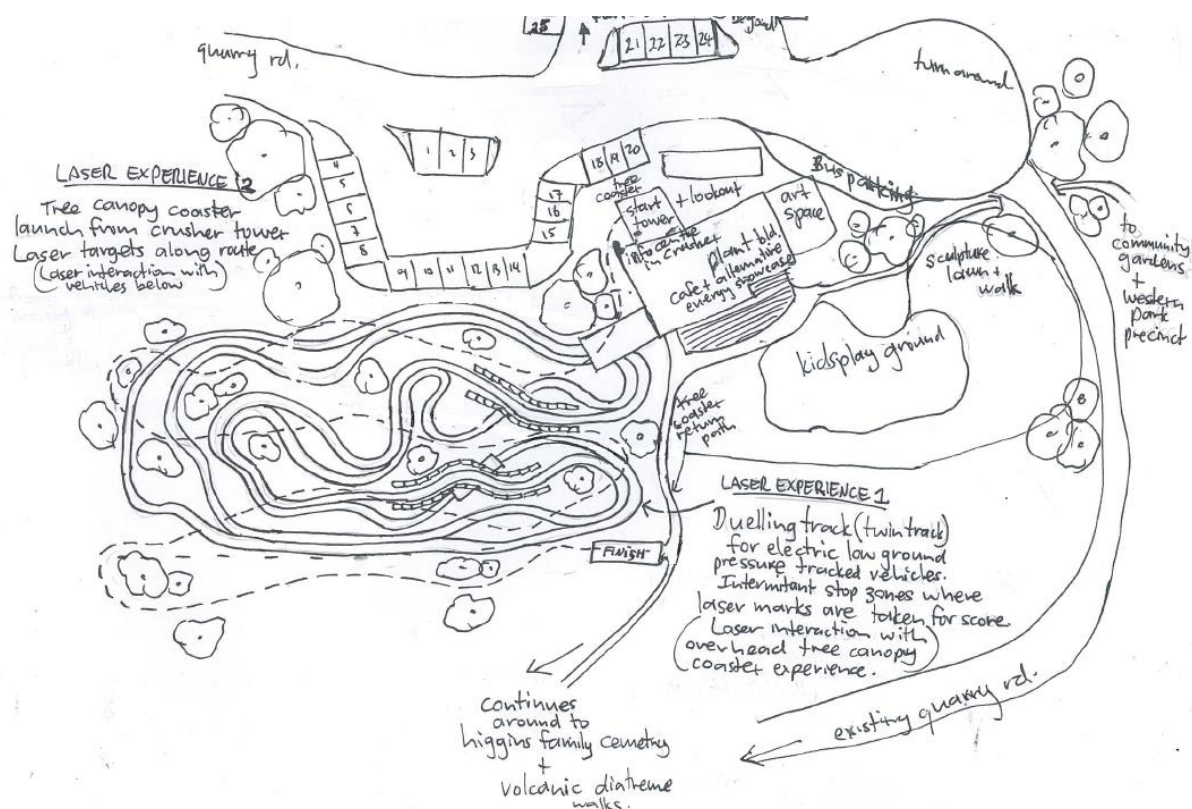 25
21 22 23 24
quarry rd.
turn around
1 2 3
18 19 20
4
5
6
7
8
17
16
15
9 10 11 12 13 14
LASER EXPERIENCE 2
Tree canopy coaster
launch from crusher tower
Laser targets along route
(Laser interaction with
vehicles below)
tree
coaster
start
tower
+ lookout
info centre
in crusher
plant bld.
cafe + alternative
energy showcase
art
space
Bus parking
sculpture
lawn +
walk
to
community
gardens
+
western
park
precinct
kidsplay ground
tree
coaster
return
path
LASER EXPERIENCE 1
Duelling track (twin track)
for electric low ground
pressure tracked vehicles.
Intermitant stop zones where
laser marks are taken for score
(Laser interaction with
overhead tree canopy
coaster experience.)
FINISH
continues
around to
higgins family cemetry
+
volcanic diatreme
walks.
existing quarry rd.